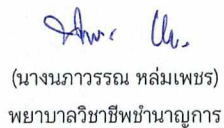 (นางนภาวรรณ หล่มเพชร)
พยาบาลวิชาชีพชำนาญการ